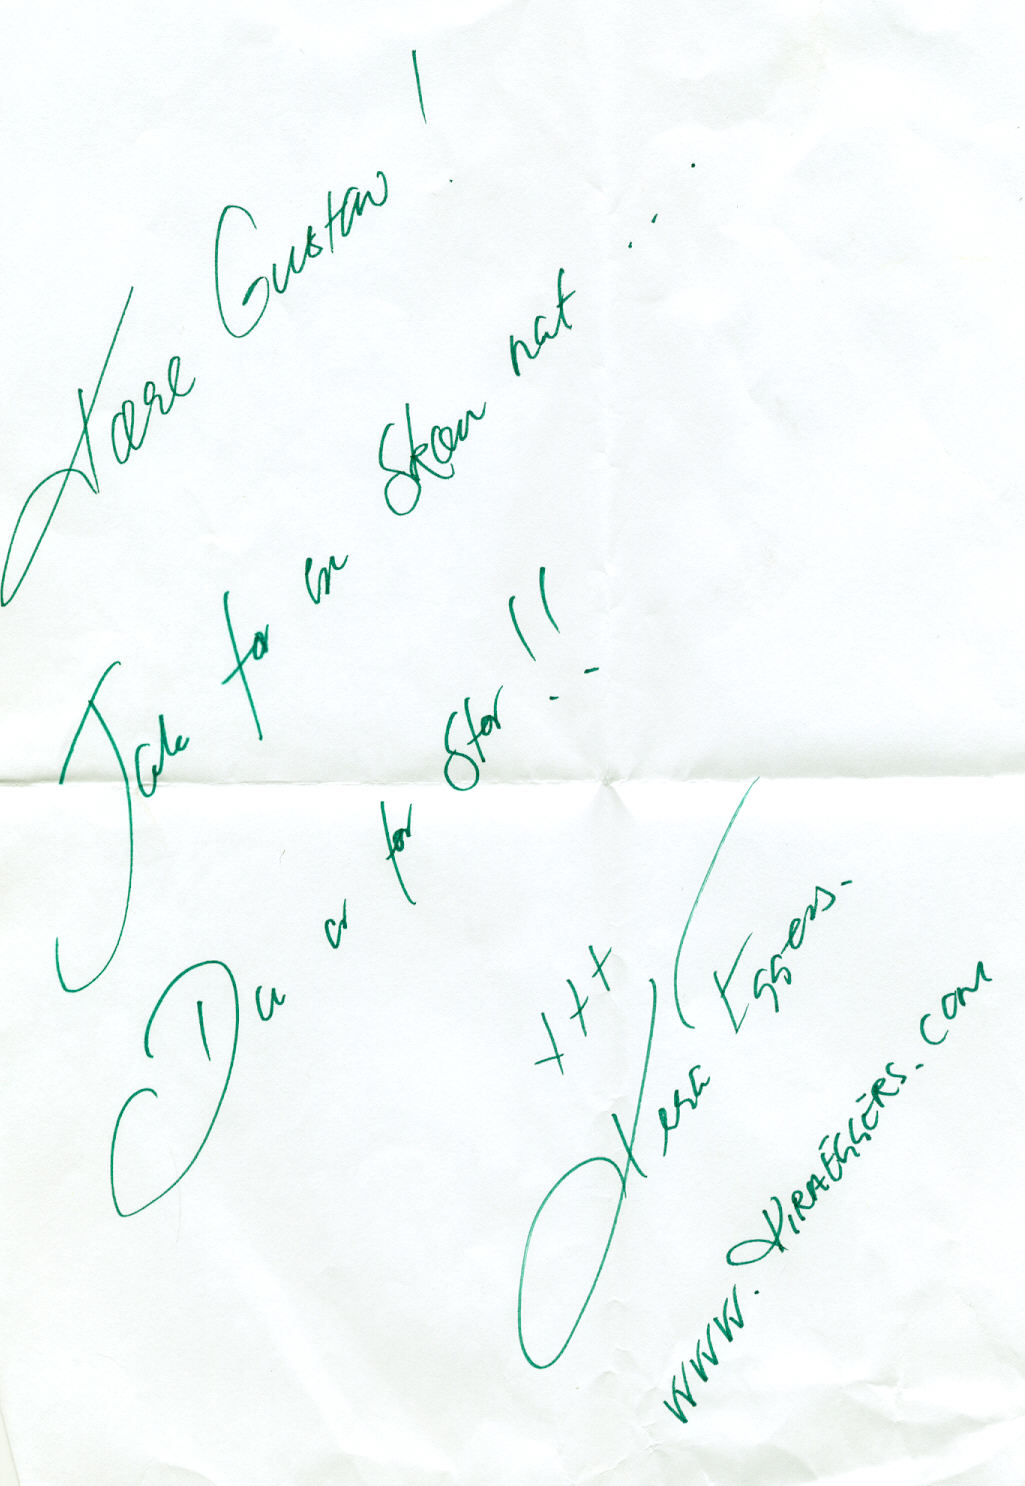 Kære Gustav!
Tak for en skøn nat...
Du er for stor!!
+++
Kira Eggers.
www.KIRAEGGERS.com